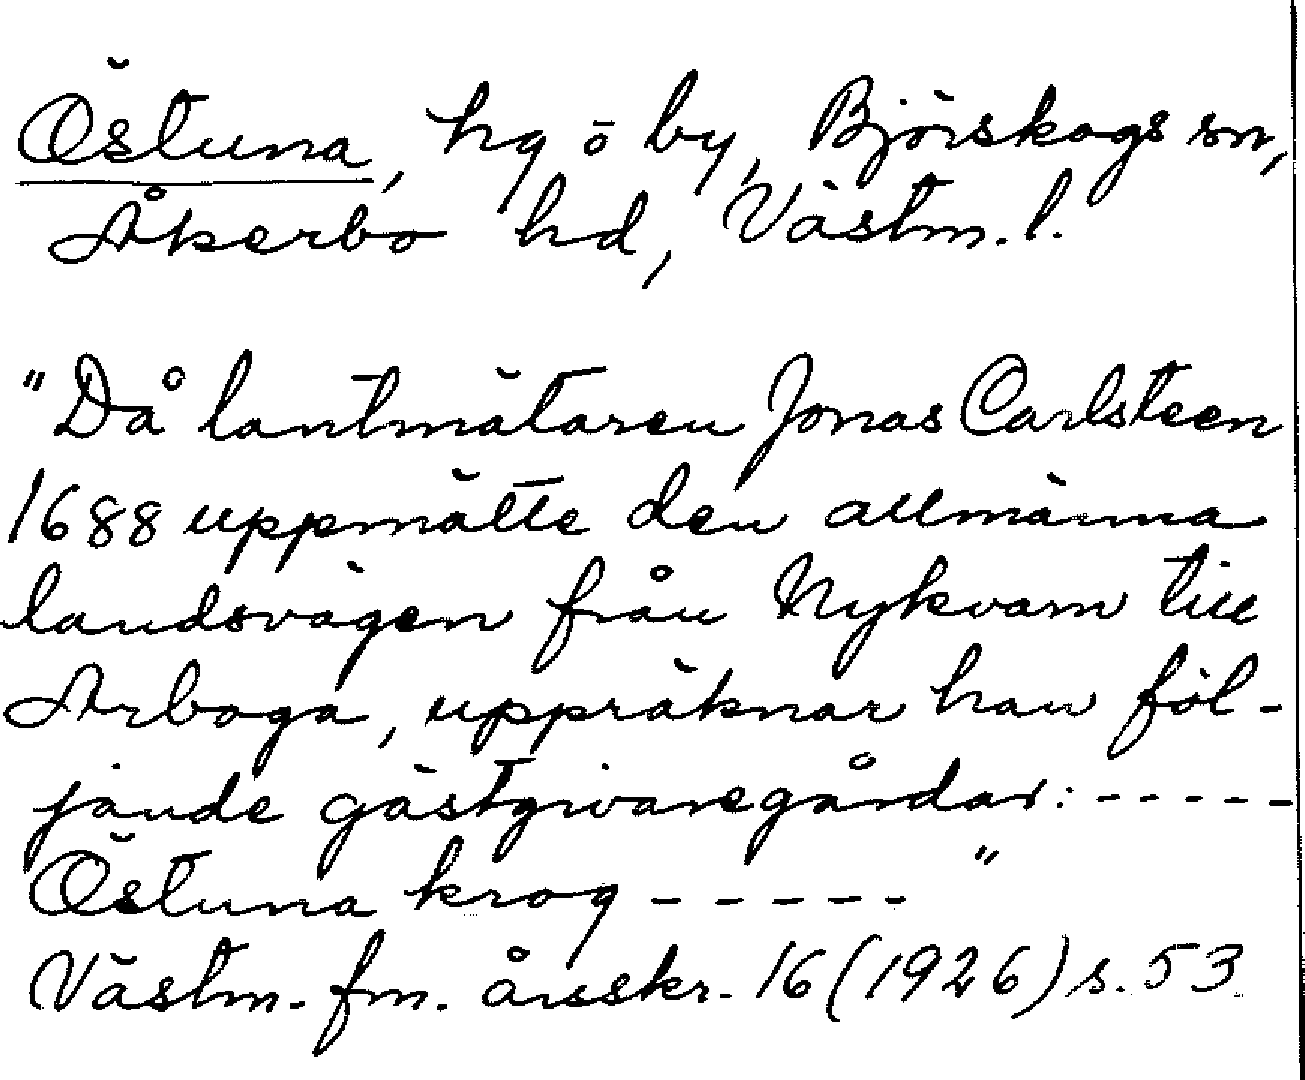 Östuna, hg ö by, Björskogs sn,
Åkerbo hd, Västm. l.
"Då lantmätaren Jonas Carlsteen
1688 uppmätte den allmänna
landsvägen från Nykvarn till
Arboga, uppräknar han föl-
jande gästgivaregårdar: -----
Östuna krog -----"
Västm. fm. årsskr. 16 (1926) s. 53